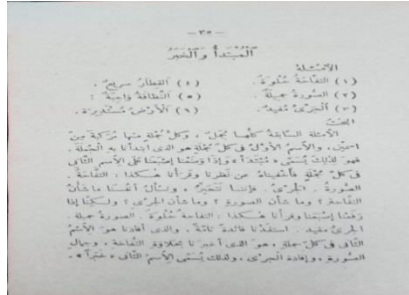 — ٣٥ —
اَلْمُبْتَدَأُ وَالْخَبَرُ
الأمثلة
(١) التفاحةُ حُلْوَةٌ . (٤) القِطَارُ سَرِيعٌ .
(٢) الصورةُ جميلةٌ . (٥) النَّظافةُ وَاجِبَةٌ .
(٣) الجَرْيُ مُفِيدٌ . (٦) الأَرْضُ مُسْتَدِيرَة .
البحث
الأمثلة السابقة كلُّها جُمَل ، وكلُّ جملةٍ منها مُرَكَّبةٌ من
اسمين، والاسم الأوّل فى كلِّ جملةٍ هو الذى ابتدأنا به الجملة .
فهو لذلك يُسَمَّى «مُبْتَدَأً» وإذا وضعنا إصبَعَنا على الاسم الثانى
فى كلِّ جملةٍ فأخفيناهُ عن نظرنا وقرأنا هكذا : التفاحة .
الصُّورة . الجرى . فإننا نَتَحَيَّرُ ، ونسأل أنفسنا ما شأن
التفاحة ؟ وما شأن الصورة ؟ وما شأن الجرى ؟ ولكنَّا إذا
رَفَعْنا إصبَعَنا وقرأنا هكذا : التفاحة حُلْوَة . الصورة جميلة .
الجرىُ مفيد . استفدنا فائدة تامّة ، والذى أفادنا هو الاسمُ
الثانى فى كلِّ جملةٍ ، هو الذى أخبرنا بحلاوة التفاحة ، وجمالِ
الصورة ، وإفادة الجرى ، ولذلك يُسَمَّى الاسم الثانى «خبراً» .